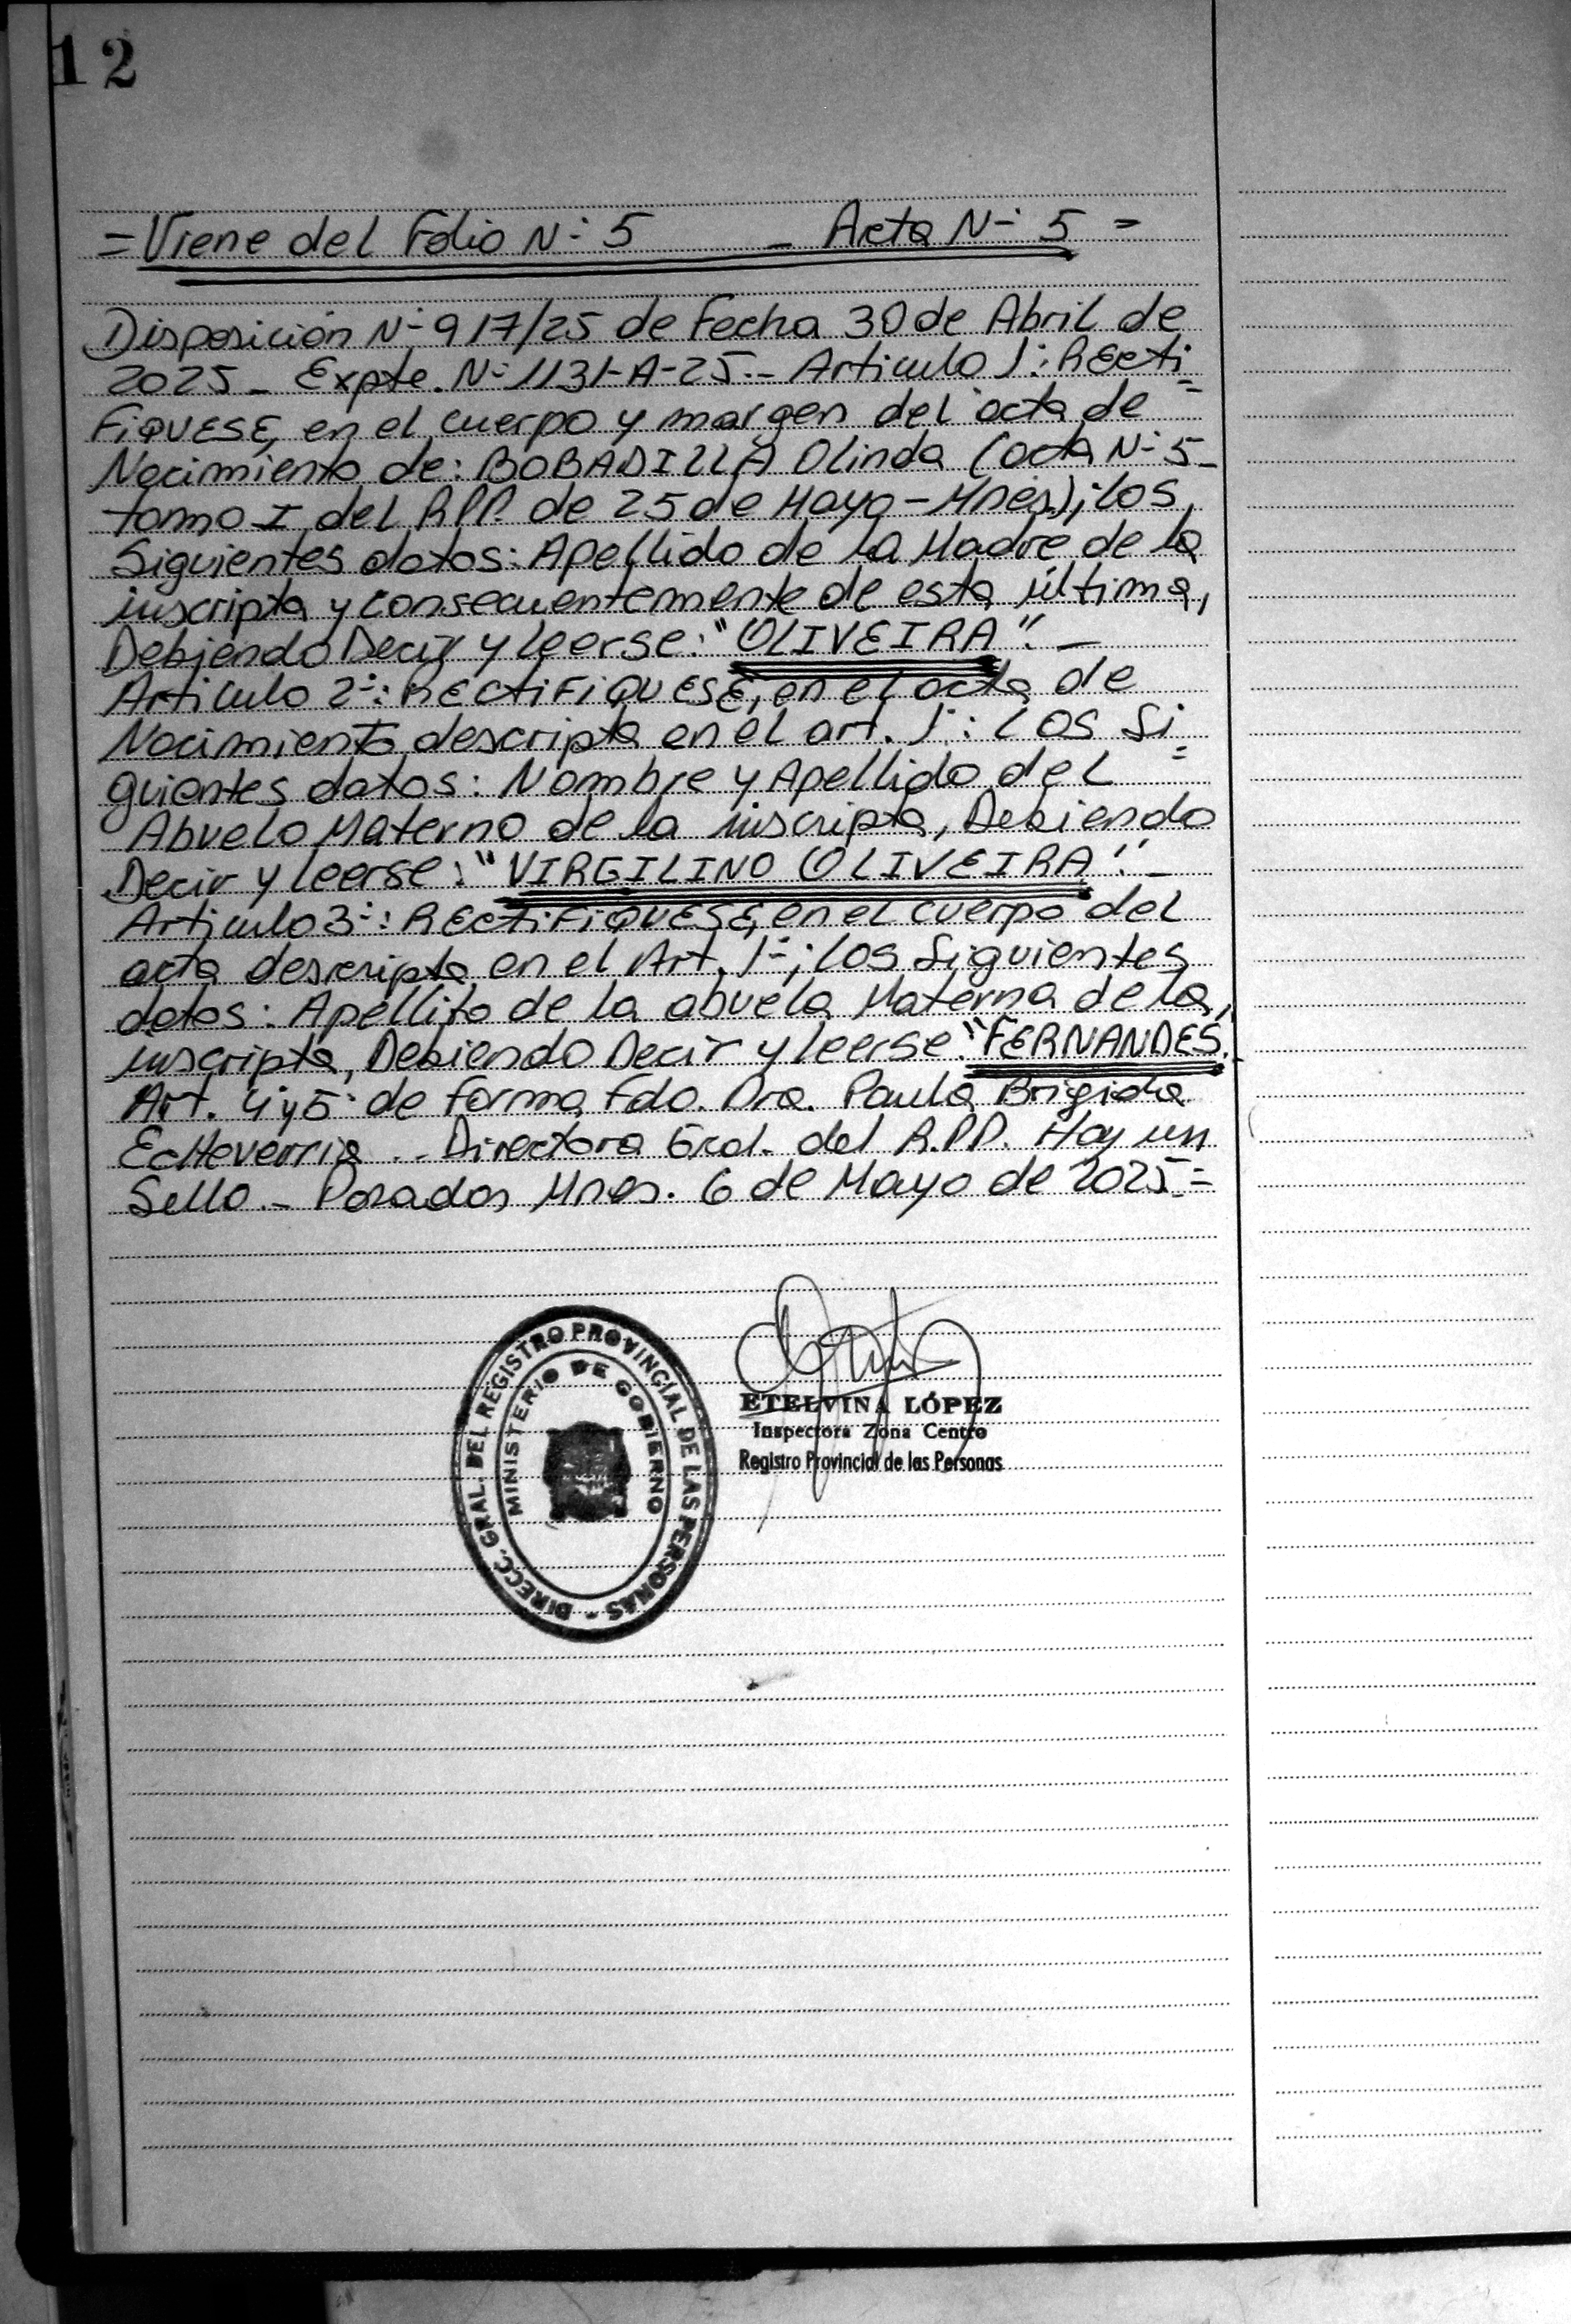 12
= Viene del Folio N° 5 - Acta N° 5 =
Disposición N° 917/25 de Fecha 30 de Abril de
2025 - Expte. N° 1131-A-25.- Articulo 1°: RECti=
FiQUESE, en el cuerpo y margen del acta de
Nacimiento de: BOBADILLA Olinda (acta N° 5-
tomo I del R.P.P. de 25 de Mayo - Mnes.); los
Siguientes datos: Apellido de la Madre de la
inscripta y consecuentemente de esta última,
Debiendo Decir y leerse: "OLIVEIRA".-
Articulo 2°: RECtiFiQUESE, en el acta de
Nacimiento descripta en el art. 1°: los Si=
guientes datos: Nombre y Apellido del
Abuelo Materno de la inscripta, Debiendo
Decir y leerse: "VIRGILINO OLIVEIRA".-
Articulo 3°: RECtiFiQUESE, en el cuerpo del
acta descripta en el Art. 1°; los Siguientes
datos: Apellido de la abuela Materna de la
inscripta, Debiendo Decir y leerse: "FERNANDES.-
Art. 4° y 5° de forma Fdo. Dra. Paula Brigida
Echeverria .- Directora Gral. del R.P.P. Hay un
Sello.- Posadas Mnes. 6 de Mayo de 2025 =
DIRECC. GRAL. DEL REGISTRO PROVINCIAL DE LAS PERSONAS -
MINISTERIO DE GOBIERNO
ETELVINA LÓPEZ
Inspectora Zona Centro
Registro Provincial de las Personas